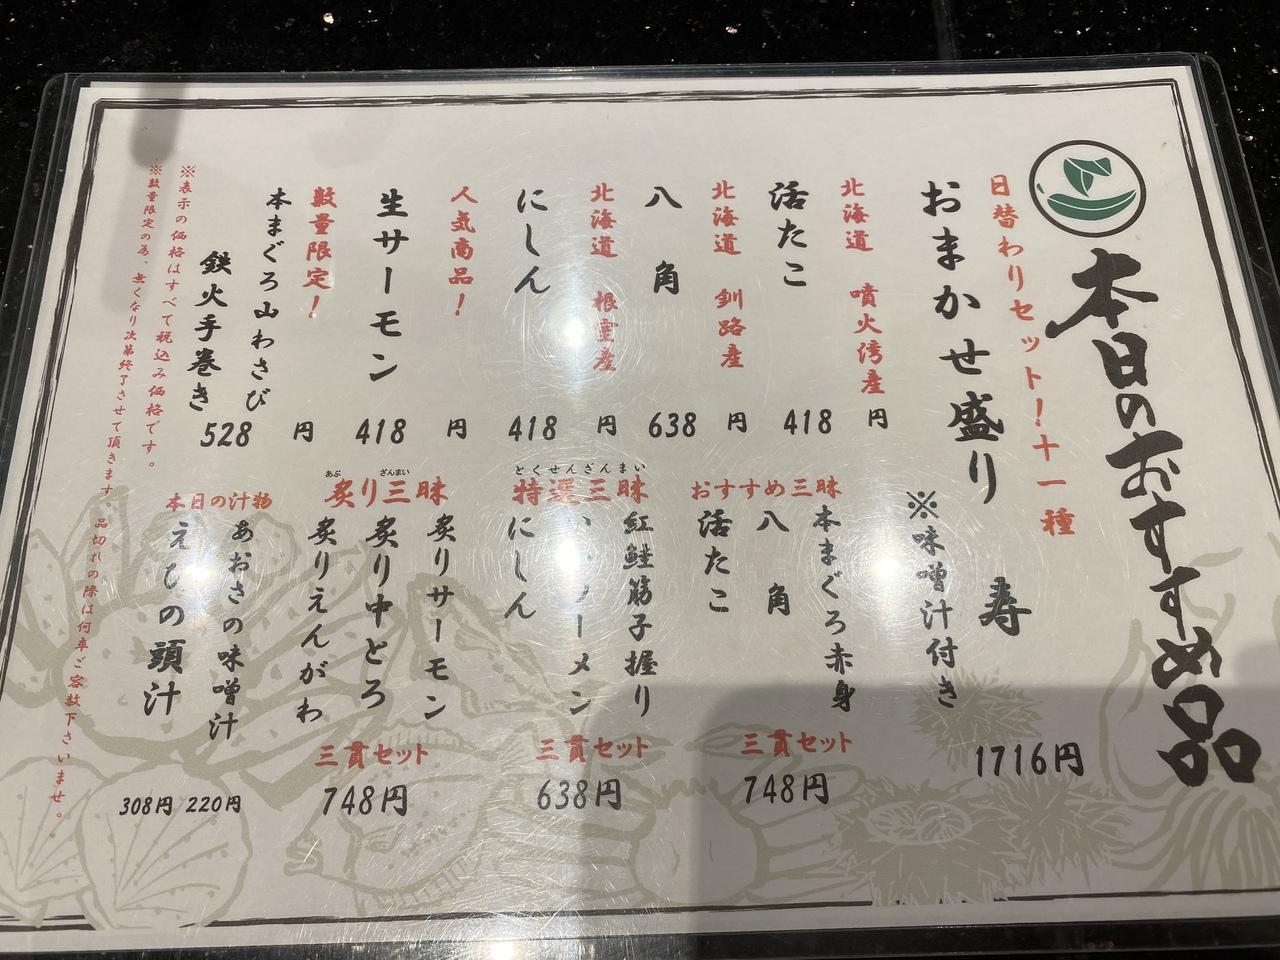 本日のおすすめ品
日替わりセット！十一種
おまかせ盛り 寿
※味噌汁付き
1716円
北海道 噴火湾産
活たこ
418円
北海道 釧路産
八角
638円
北海道 根室産
にしん
418円
人気商品！
生サーモン
418円
数量限定！
本まぐろ山わさび
鉄火手巻き
528円
おすすめ三昧
本まぐろ赤身
八角
活たこ
三貫セット
748円
とくせんざんまい
特選三昧
紅鮭筋子握り
にしん
三貫セット
638円
あぶ ざんまい
炙り三昧
炙りサーモン
炙り中とろ
炙りえんがわ
三貫セット
748円
本日の汁物
あおさの味噌汁
220円
えびの頭汁
308円
※表示の価格はすべて税込み価格です。
※数量限定の為、無くなり次第終了させて頂きます。品切れの際は何卒ご容赦下さいませ。